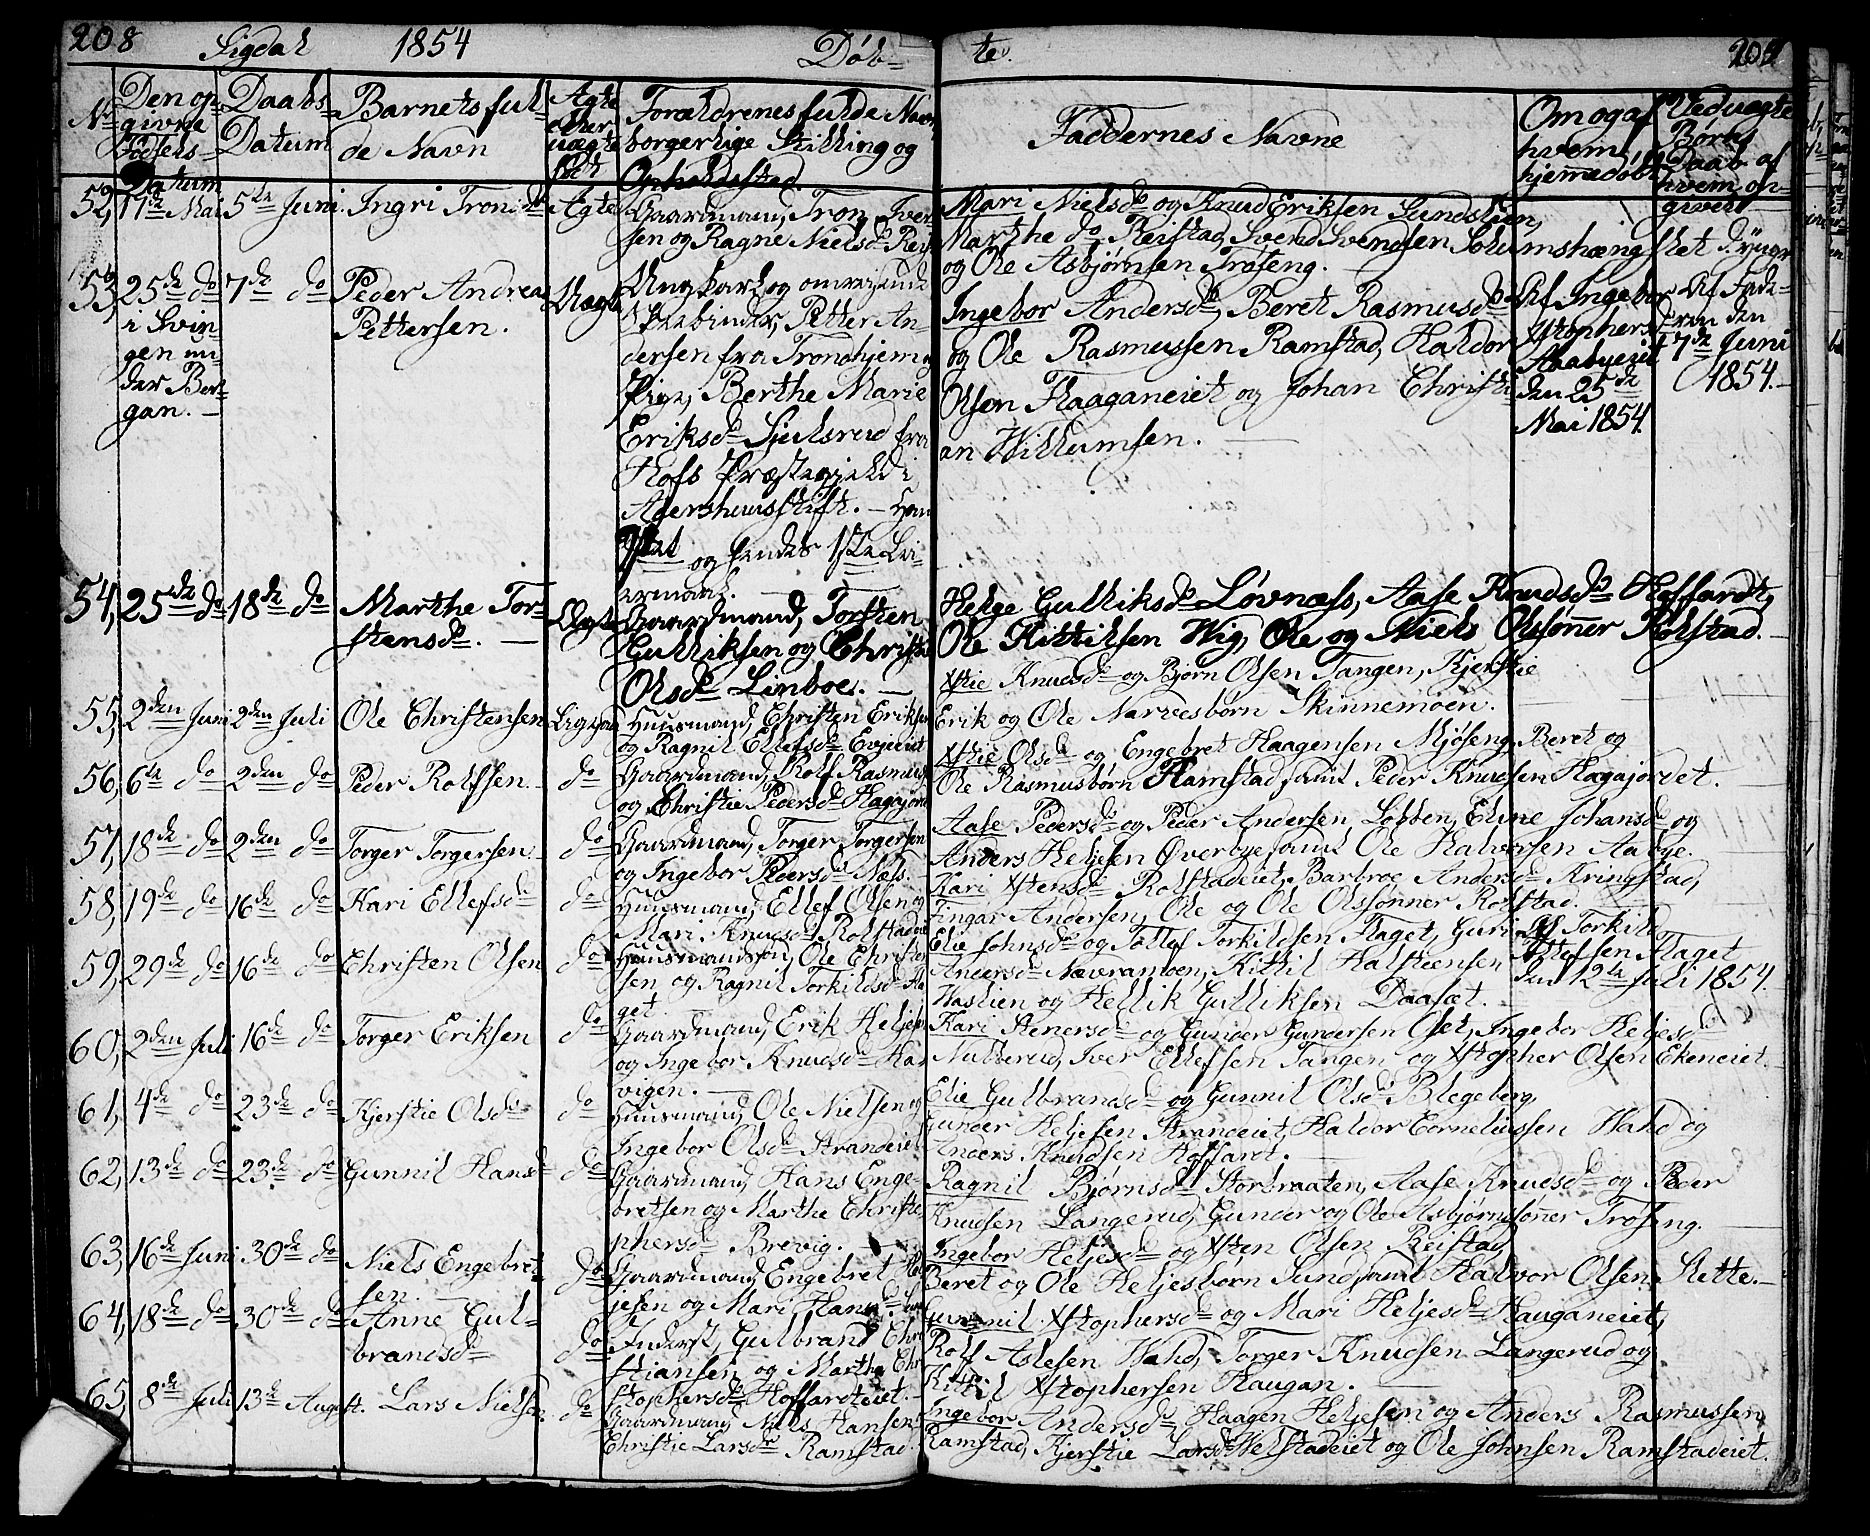 208 Sigdal 1854 Døb- te. 209
No
Den op-
givne
Fødsels-
Datum
Daabs-
Datum
Barnets ful-
de Navn
Ægte
eller
uægte
født
Forældrenes fulde Navn,
borgerlige Stilling og
Opholdsstad.
Faddernes Navne
Om og af
hvem
hjemedøbt
Ved uægte
Børns
Daab af
hvem an-
givet
52, 17de Mai 5te Juni Ingri Tronsd. Ægte
Gaardmand, Tron Iver-
sen og Ragne Nielsd.
Mari Nielsd. og Knud Eriksen Sundslien,
Marthe do Reistad, Svend Svendsen Solumshængslet d. yngr.
og Ole Asbjørnsen Trøseng.
53, 25de do 7de do Peder Andreas
Pettersen. Uægte
i Svin-
gen un-
der Ber-
gan.
Ungkarl og omreisende
Petter An-
dersen fra Trondhjem og
Pige, Berthe Marie
Eriksd. fra
Hofs Præstegjeld i
Agershuusstift. - Hans
og hendes 1ste Lei-
ermaal.
Ingebor Andersd. Beret Rasmusd.
og Ole Rasmussen Ramstad, Haldor
Olsen Haaganeiet og Johan Christi-
an Willumsen.
Af Ingebor
Xstophersd.
Aabyeeiet
den 25de
Mai 1854.
Af Fade-
ren den
7de Juni
1854.
54, 25de do 18de do Marthe Tor-
stensd. Ægte
Gaardmand, Torsten
Gulliksen og Christie
Olsd. Linboe.
Helge Gulliksd. Løvnæss, Aase Knudsd. Hoffardt,
Ole Kittilsen Wig, Ole og Niels Olsønner Rolstad.
55, 2den Juni 2den Juli Ole Christensen Ligesaa
Huusmand, Christen Eriksen
og Ragnil Ellefsd. Evjeeiet
Xstie Knudsd. og Bjørn Olsen Tangen, Kjerstie
Erik og Ole Narvesbørn Skinnemoen.
56, 6te do 2den do Peder Rolfsen do
Gaardmand, Rolf Rasmus-
og Christie Pedersd. Hagajord
Xstie Olsd. og Engebret Haagensen Mjøseng, Beret og
Ole Rasmusbørn Ramstad samt Peder Knudsen Hagajordet.
57, 18de do 2den do Torger Torgersen do
Gaardmand, Torger Torgersen
og Ingebor Pedersd. Næs.
Aase Pedersd. og Peder Andersen Lobben, Eline Johansd. og
Anders Heljesen Øverbye, samt Ole Halvorsen Aabye.
58, 19de do 16de do Kari Ellefsd. do
Huusmand, Ellef Olsen og
Mari Knudsd. Rolstadeiet
Kari Xstensd. Rolstadeiet, Barbroe Andersd. Kringstad,
Fingar Andersen, Ole og Ole Olssønner Rolstad.
59, 29de do 16de do Christen Olsen do
Huusmandssøn, Ole Christen-
sen og Ragnil Torkildsd. Fla-
get.
Elie Johnsd. og Tollef Torkildsen Flaget, Guri
Andersd. Nævramoen, Kittil Halsteensen
Haslien og Hellik Gulliksen Daaset.
Af Torkild
Tollefsen Flaget
den 12te Juli 1854.
60, 2den Juli 16de do Torger Eriksen do
Gaardmand, Erik Heljesen
og Ingebor Knudsd. Haa-
vigen.
Kari Stenersd. og Gunder Gundersen Olset, Ingebor Heljesd.
Nubberud, Iver Ellefsen Tangen og Xstopher Olsen Ekeneiet.
61, 4de do 23de do Kjerstie Olsd. do
Huusmand, Ole Nielsen og
Ingebor Olsd. Strandeiet
Elie Gulbrandsd. og Gunnil Olsd. Blegeberg,
Gunder Heljesen Strandeiet, Haldor Corneliussen Hahd og
Anders Knudsen Hoffardt.
62, 13de do 23de do Gunnil Hansd. do
Gaardmand, Hans Enge-
bretsen og Marthe Christo-
phersd. Brevig.
Ragnil Bjørnsd. Storbraaten, Aase Knudsd. og Peder
Knudsen Langerud, Gunder og Ole Asbjørnssønner Trøseng.
63, 16de Juni 30de do Niels Engebret-
sen. do
Gaardmand, Engebret Hel-
jesen og Mari Hansd.
Ingebor Heljesd. og Xsten Olsen Reistad,
Beret og Ole Heljesbørn Sund, samt Halvor Olsen Slette.
64, 18de do 30de do Anne Gul-
brandsd. do
Inderst, Gulbrand Chri-
stiansen og Marthe Chri-
stophersd. Hoffardteiet.
Gunnil Xstophersd. og Mari Heljesd. Hauganeiet,
Rolf Aslesen Hahd, Torger Knudsen Langerud og
Kittil Xstophersen Haugan.
65, 8de Juli 13de August. Lars Nielsen do
Gaardmand, Niels Hansen
Christie Larsd. Ramstad.
Ingebor Andersd. Haagen Heljesen og Anders Rasmussen
Ramstad, Kjerstie Larsd. Helstadeiet og Ole Johnsen Ramstadeiet.